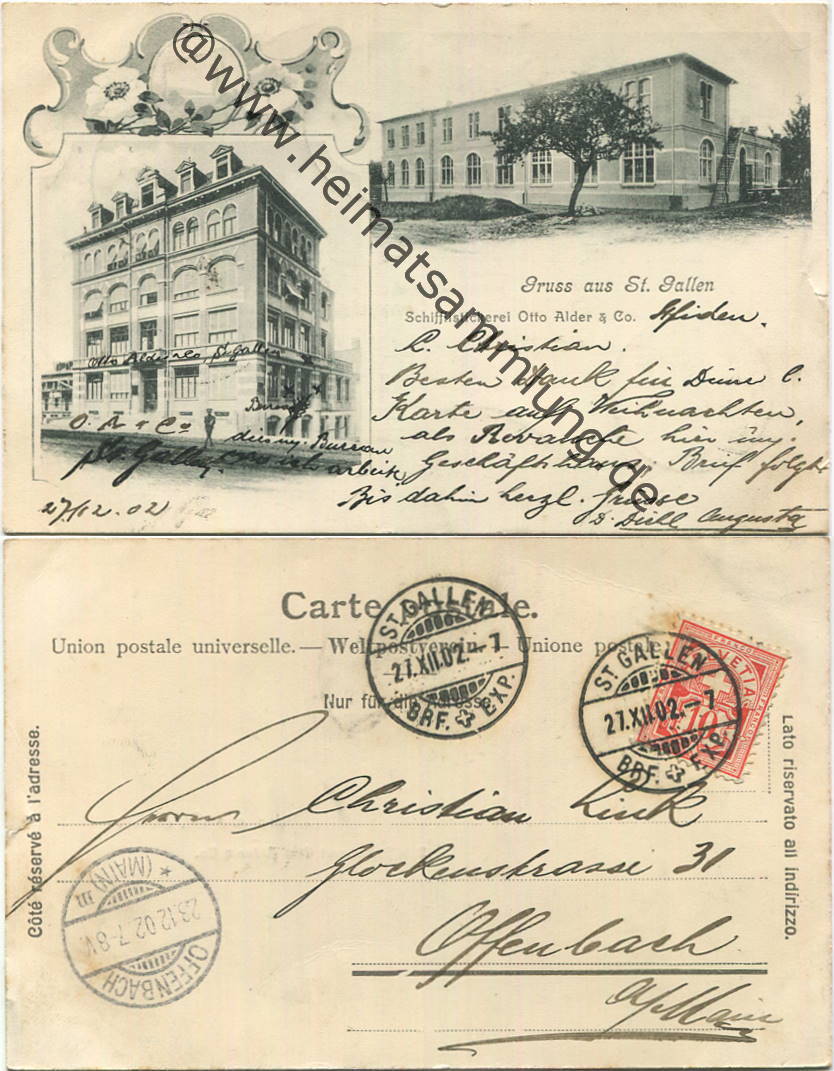 @www.heimatsammlung.de
Gruss aus St. Gallen
Schifflistickerei Otto Alder & Co.
L. Christian.
Besten Dank für Deine l.
Karte auf Weihnachten,
als Revanche hier
Geschäftshaus. Brief folgt
Bis dahin herzl. Grüsse
D. Augusta
Otto Alder & Co, St. Gallen
Bureau
O. A & Co
dies my. Bureau
St. Gallen wo ich arbeite
27/12.02
Carte postale.
Union postale universelle. — Weltpostverein. — Unione postale
Nur für die Adresse.
ST. GALLEN
27.XII.02.-7
BRF. EXP.
ST. GALLEN
27.XII.02.-7
BRF. EXP.
FRANCO
HELVETIA
10
Côté réservé à l'adresse.
Lato riservato all indirizzo.
Herrn Christian Link
Glockenstrasse 31
Offenbach
a/Main
* (MAIN) III
28.12.02.7-8V.
OFFENBACH